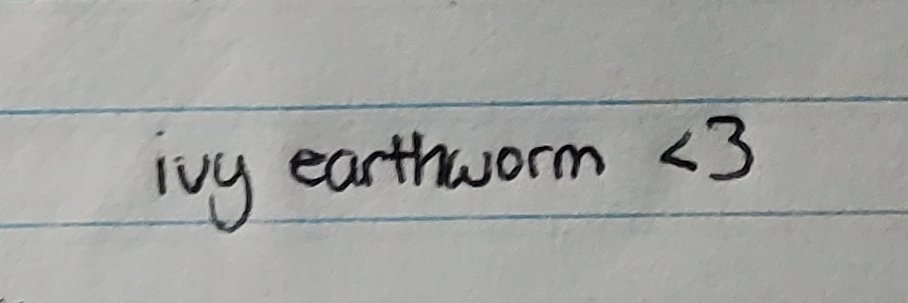 ivy earthworm <3